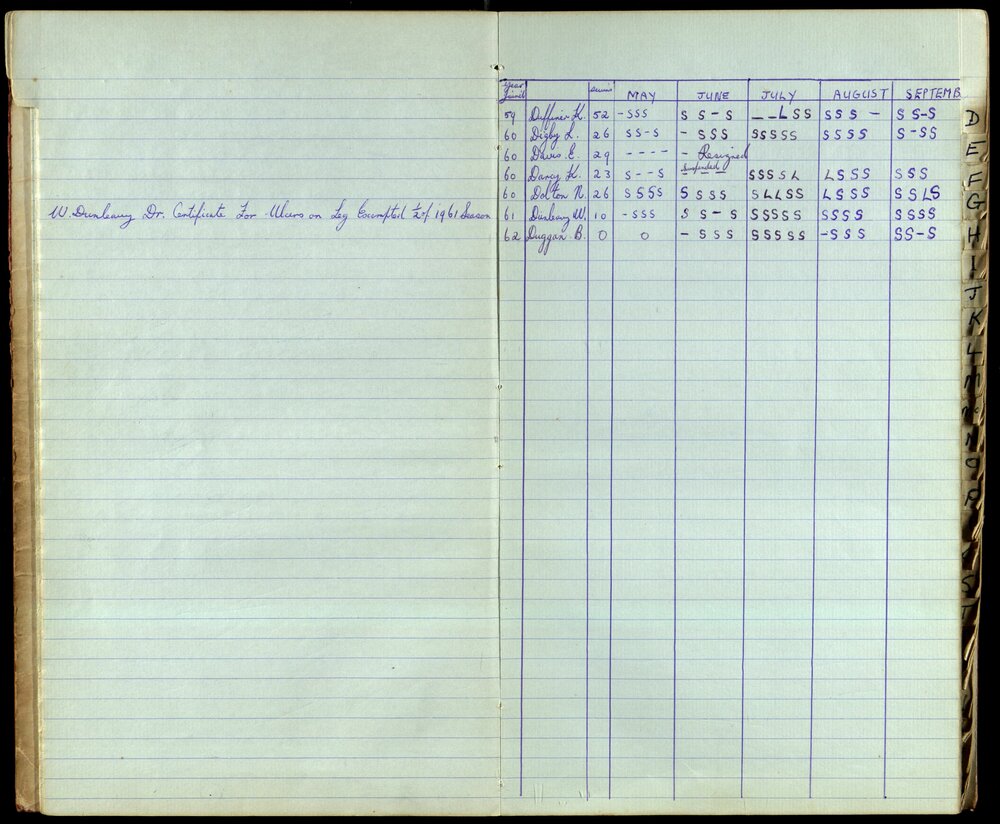 W. Dunleavy Dr. Certificate For Ulcers on Leg Exempted ½ of 1961 Season
Year Joined Swims MAY JUNE JULY AUGUST SEPTEMB
59 Diffiner K. 52 - S S S S S - S _ _ L S S S S S - S S - S
60 Digby L. 26 S S - S - S S S S S S S S S S S S S - S S
60 Davis E. 29 - - - - - Resigned
60 Darcy K. 23 S - - S Suspended - - - - S S S S L L S S S S S S
60 Dalton N. 26 S S S S S S S S S L L S S L S S S S S L S
61 Dunleavy W. 10 - S S S S S - S S S S S S S S S S S S S S
62 Duggan B. 0 0 - S S S S S S S S - S S S S S - S
D
E
F
G
H
I
J
K
L
M
Mc
N
O
P
S
T